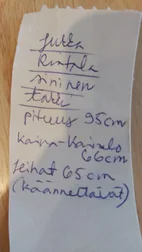 Jukka
Rintala
sininen
takki
pituus 95cm
Kaina-Kainalo
66cm
hihat 65cm
(käännettävät)